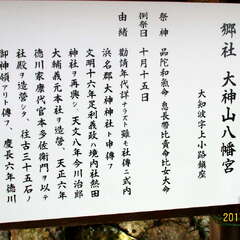 郷社 大神山八幡宮
大知波字上小路鎮座
祭神 品陀和氣命 息長帯比賣命 比女大命
例祭日 十月十五日
由緒 勧請年代詳ナリスト雖モ社傳ニ式内
浜名郡大神神社ト申傳フ
文明十六年足利義政ハ境内社熱田
神社ヲ再興シ 天文八年今川治部
大輔義元本社ヲ造營、天正六年
徳川家康代官本多佐衛門ヲ以テ
社殿ヲ造營シタ、往古三十五石ノ
御神領アリト傳フ、慶長六年徳川
201